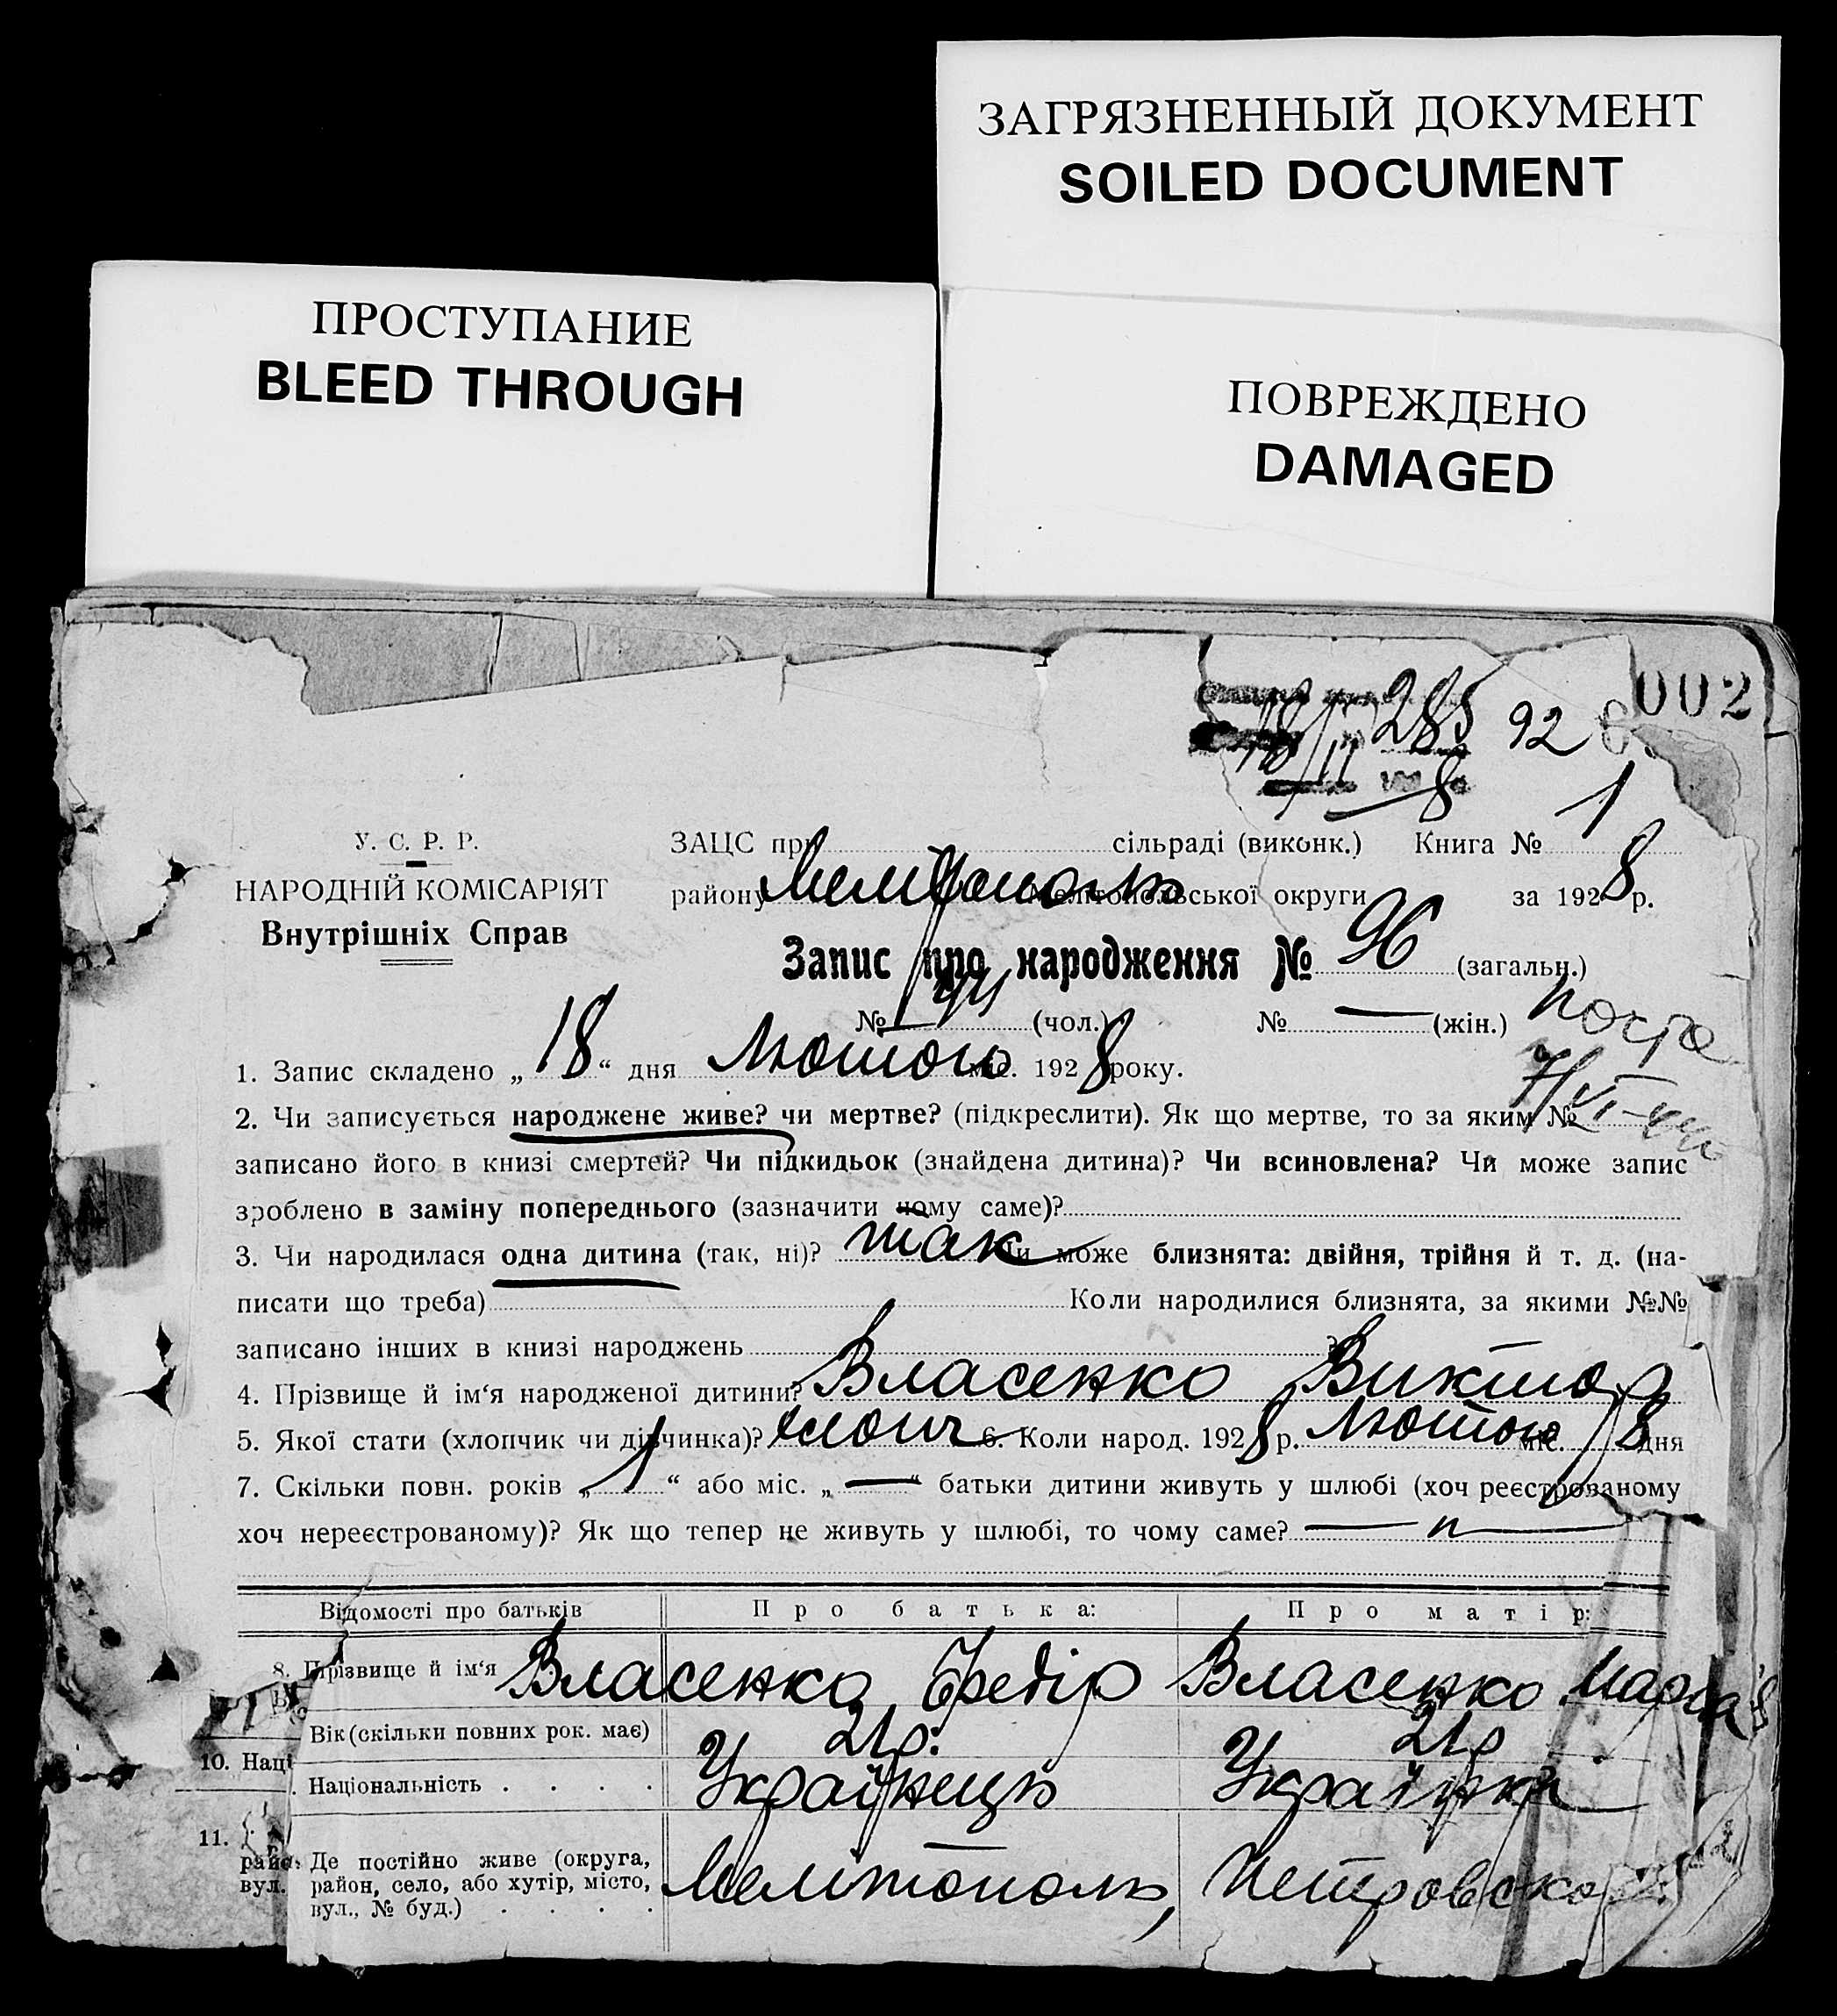 ЗАГРЯЗНЕННЫЙ ДОКУМЕНТ
SOILED DOCUMENT
ПРОСТУПАНИЕ
BLEED THROUGH
ПОВРЕЖДЕНО
DAMAGED
002
285 92
18/II
8
У. С. Р. Р.
НАРОДНІЙ КОМІСАРІЯТ
Внутрішніх Справ
ЗАЦС при сільраді (виконк.) Книга № 1
району Мелітополь Мелітопольської округи за 1928 р.
Запис про народження № 96 (загальн.)
№ 44 (чол.) № — (жін.)
1. Запис складено „18“ дня Лютого міс. 1928 року.
7/VI
2. Чи записується народжене живе? чи мертве? (підкреслити). Як що мертве, то за яким №
записано його в книзі смертей? Чи підкидьок (знайдена дитина)? Чи всиновлена? Чи може запис
зроблено в заміну попереднього (зазначити чому саме)?
3. Чи народилася одна дитина (так, ні)? так Чи може близнята: двійня, трійня й т. д. (на-
писати що треба) Коли народилися близнята, за якими №№
записано інших в книзі народжень ?
4. Прізвище й ім‘я народженої дитини? Власенко Виктор
5. Якої стати (хлопчик чи дівчинка)? хлопч 6. Коли народ. 1928 р. Лютого міс. 8 дня
7. Скільки повн. років „1“ або міс. „—“ батьки дитини живуть у шлюбі (хоч реєстрованому
хоч нереєстрованому)? Як що тепер не живуть у шлюбі, то чому саме? — п —
Відомості про батьків Про батька: Про матір:
8. Прізвище й ім‘я Власенко Федір Власенко Марія
Вік (скільки повних рок. має) 21 р. 21 р
10. Наці
Національність . . . . Украінець Українка
11.
райо
вул.
Де постійно живе (округа,
район, село, або хутір, місто,
вул., № буд.) . . . .
Мелітополь, Петровско